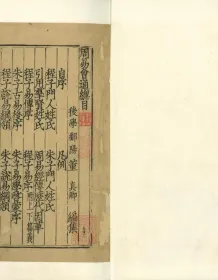 周易會通總目
後學鄱陽董真卿編集
自序
凡例
程子門人姓氏
朱子門人姓氏
引用諸賢姓氏
周易經傳歷代因革
程子易傳序
程子易序
朱子古易後序
朱子易學啓蒙序
程子說易綱領
朱子說易綱領